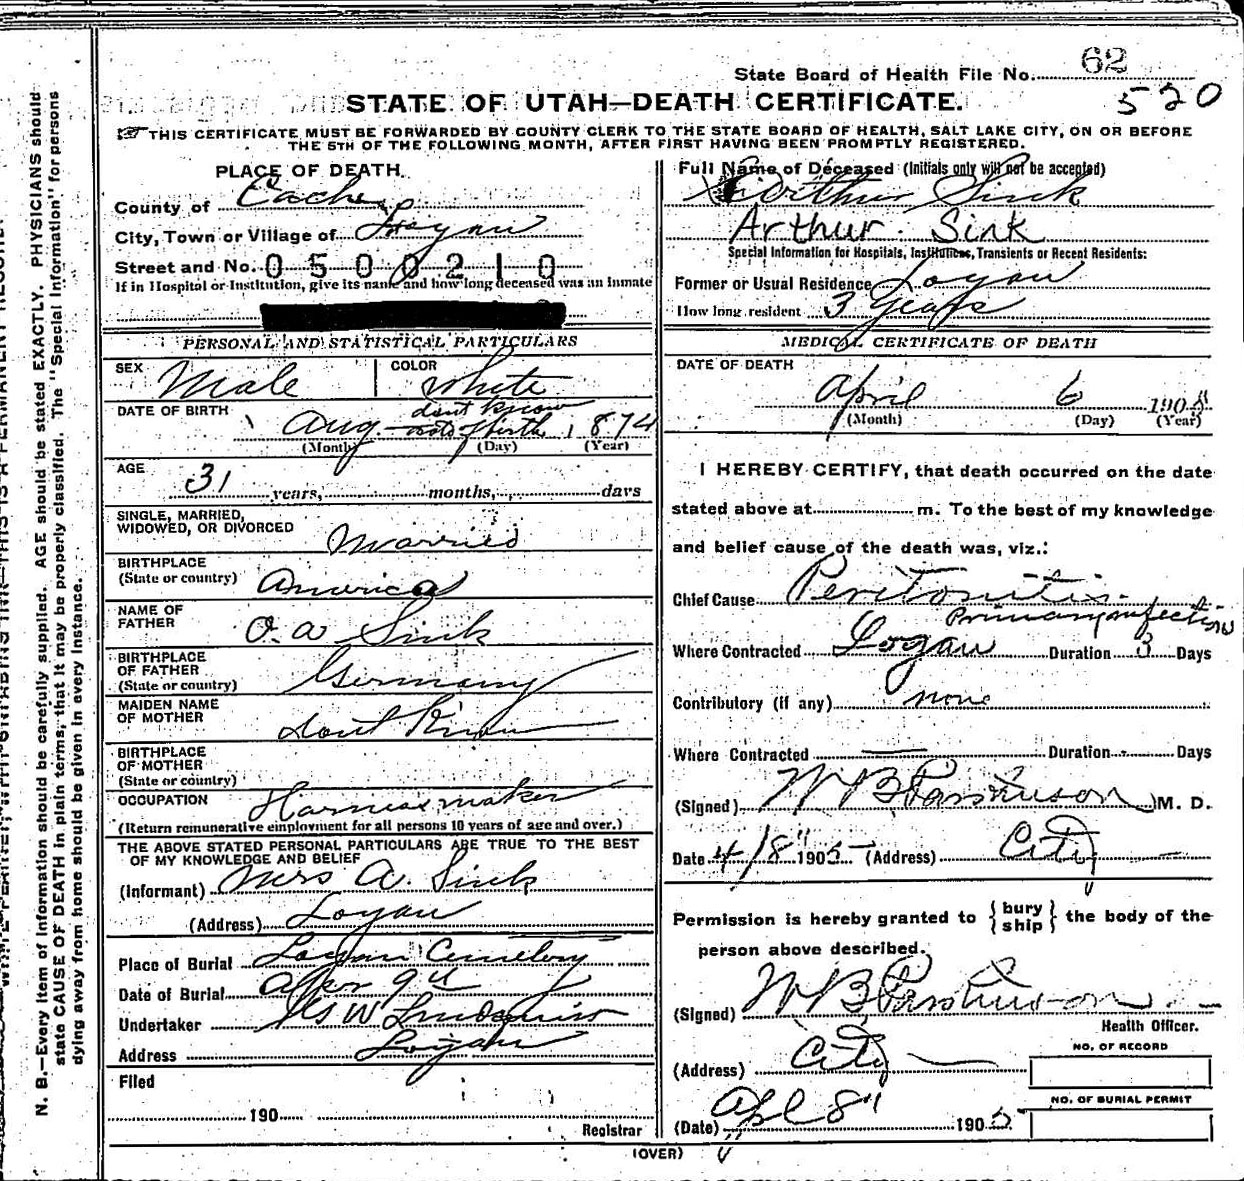 State Board of Health File No. 62
520
STATE OF UTAH—DEATH CERTIFICATE.
THIS CERTIFICATE MUST BE FORWARDED BY COUNTY CLERK TO THE STATE BOARD OF HEALTH, SALT LAKE CITY, ON OR BEFORE
THE 5TH OF THE FOLLOWING MONTH, AFTER FIRST HAVING BEEN PROMPTLY REGISTERED.
PLACE OF DEATH.
County of Cache
City, Town or Village of Logan
Street and No. 0500210
If in Hospital or Institution, give its name and how long deceased was an inmate
PERSONAL AND STATISTICAL PARTICULARS
SEX Male COLOR White
DATE OF BIRTH Aug. dont know date of birth 1874
(Month) (Day) (Year)
AGE 31 years, months, days
SINGLE, MARRIED,
WIDOWED, OR DIVORCED Married
BIRTHPLACE
(State or country) America
NAME OF
FATHER O. A Sink
BIRTHPLACE
OF FATHER
(State or country) Germany
MAIDEN NAME
OF MOTHER dont Know
BIRTHPLACE
OF MOTHER
(State or country)
OCCUPATION Harness maker
(Return remunerative employment for all persons 10 years of age and over.)
THE ABOVE STATED PERSONAL PARTICULARS ARE TRUE TO THE BEST
OF MY KNOWLEDGE AND BELIEF
(Informant) Mrs A. Sink
(Address) Logan
Place of Burial Logan Cemetery
Date of Burial 9th
Undertaker
Address Logan
Filed
190
Registrar
Full Name of Deceased (Initials only will not be accepted)
Arthur Sink
Arthur. Sink
Special Information for Hospitals, Institutions, Transients or Recent Residents:
Former or Usual Residence Logan
How long resident 3 Years
MEDICAL CERTIFICATE OF DEATH
DATE OF DEATH
April 6 1905
(Month) (Day) (Year)
I HEREBY CERTIFY, that death occurred on the date
stated above at m. To the best of my knowledge
and belief cause of the death was, viz.:
Chief Cause Peritonitis.
Primary infection
Where Contracted Logan Duration 3 Days
Contributory (if any) none
Where Contracted — Duration - Days
(Signed) W B Parkinson M. D.
Date 4/8" 1905 (Address) City
Permission is hereby granted to {bury ship} the body of the
person above described.
(Signed) W B Parkinson
Health Officer.
(Address) City
NO. OF RECORD
NO. OF BURIAL PERMIT
(Date) Apl 8" 1905
(OVER)
N. B.—Every item of information should be carefully supplied. AGE should be stated EXACTLY. PHYSICIANS should
state CAUSE OF DEATH in plain terms, that it may be properly classified. The "Special Information" for persons
dying away from home should be given in every instance.